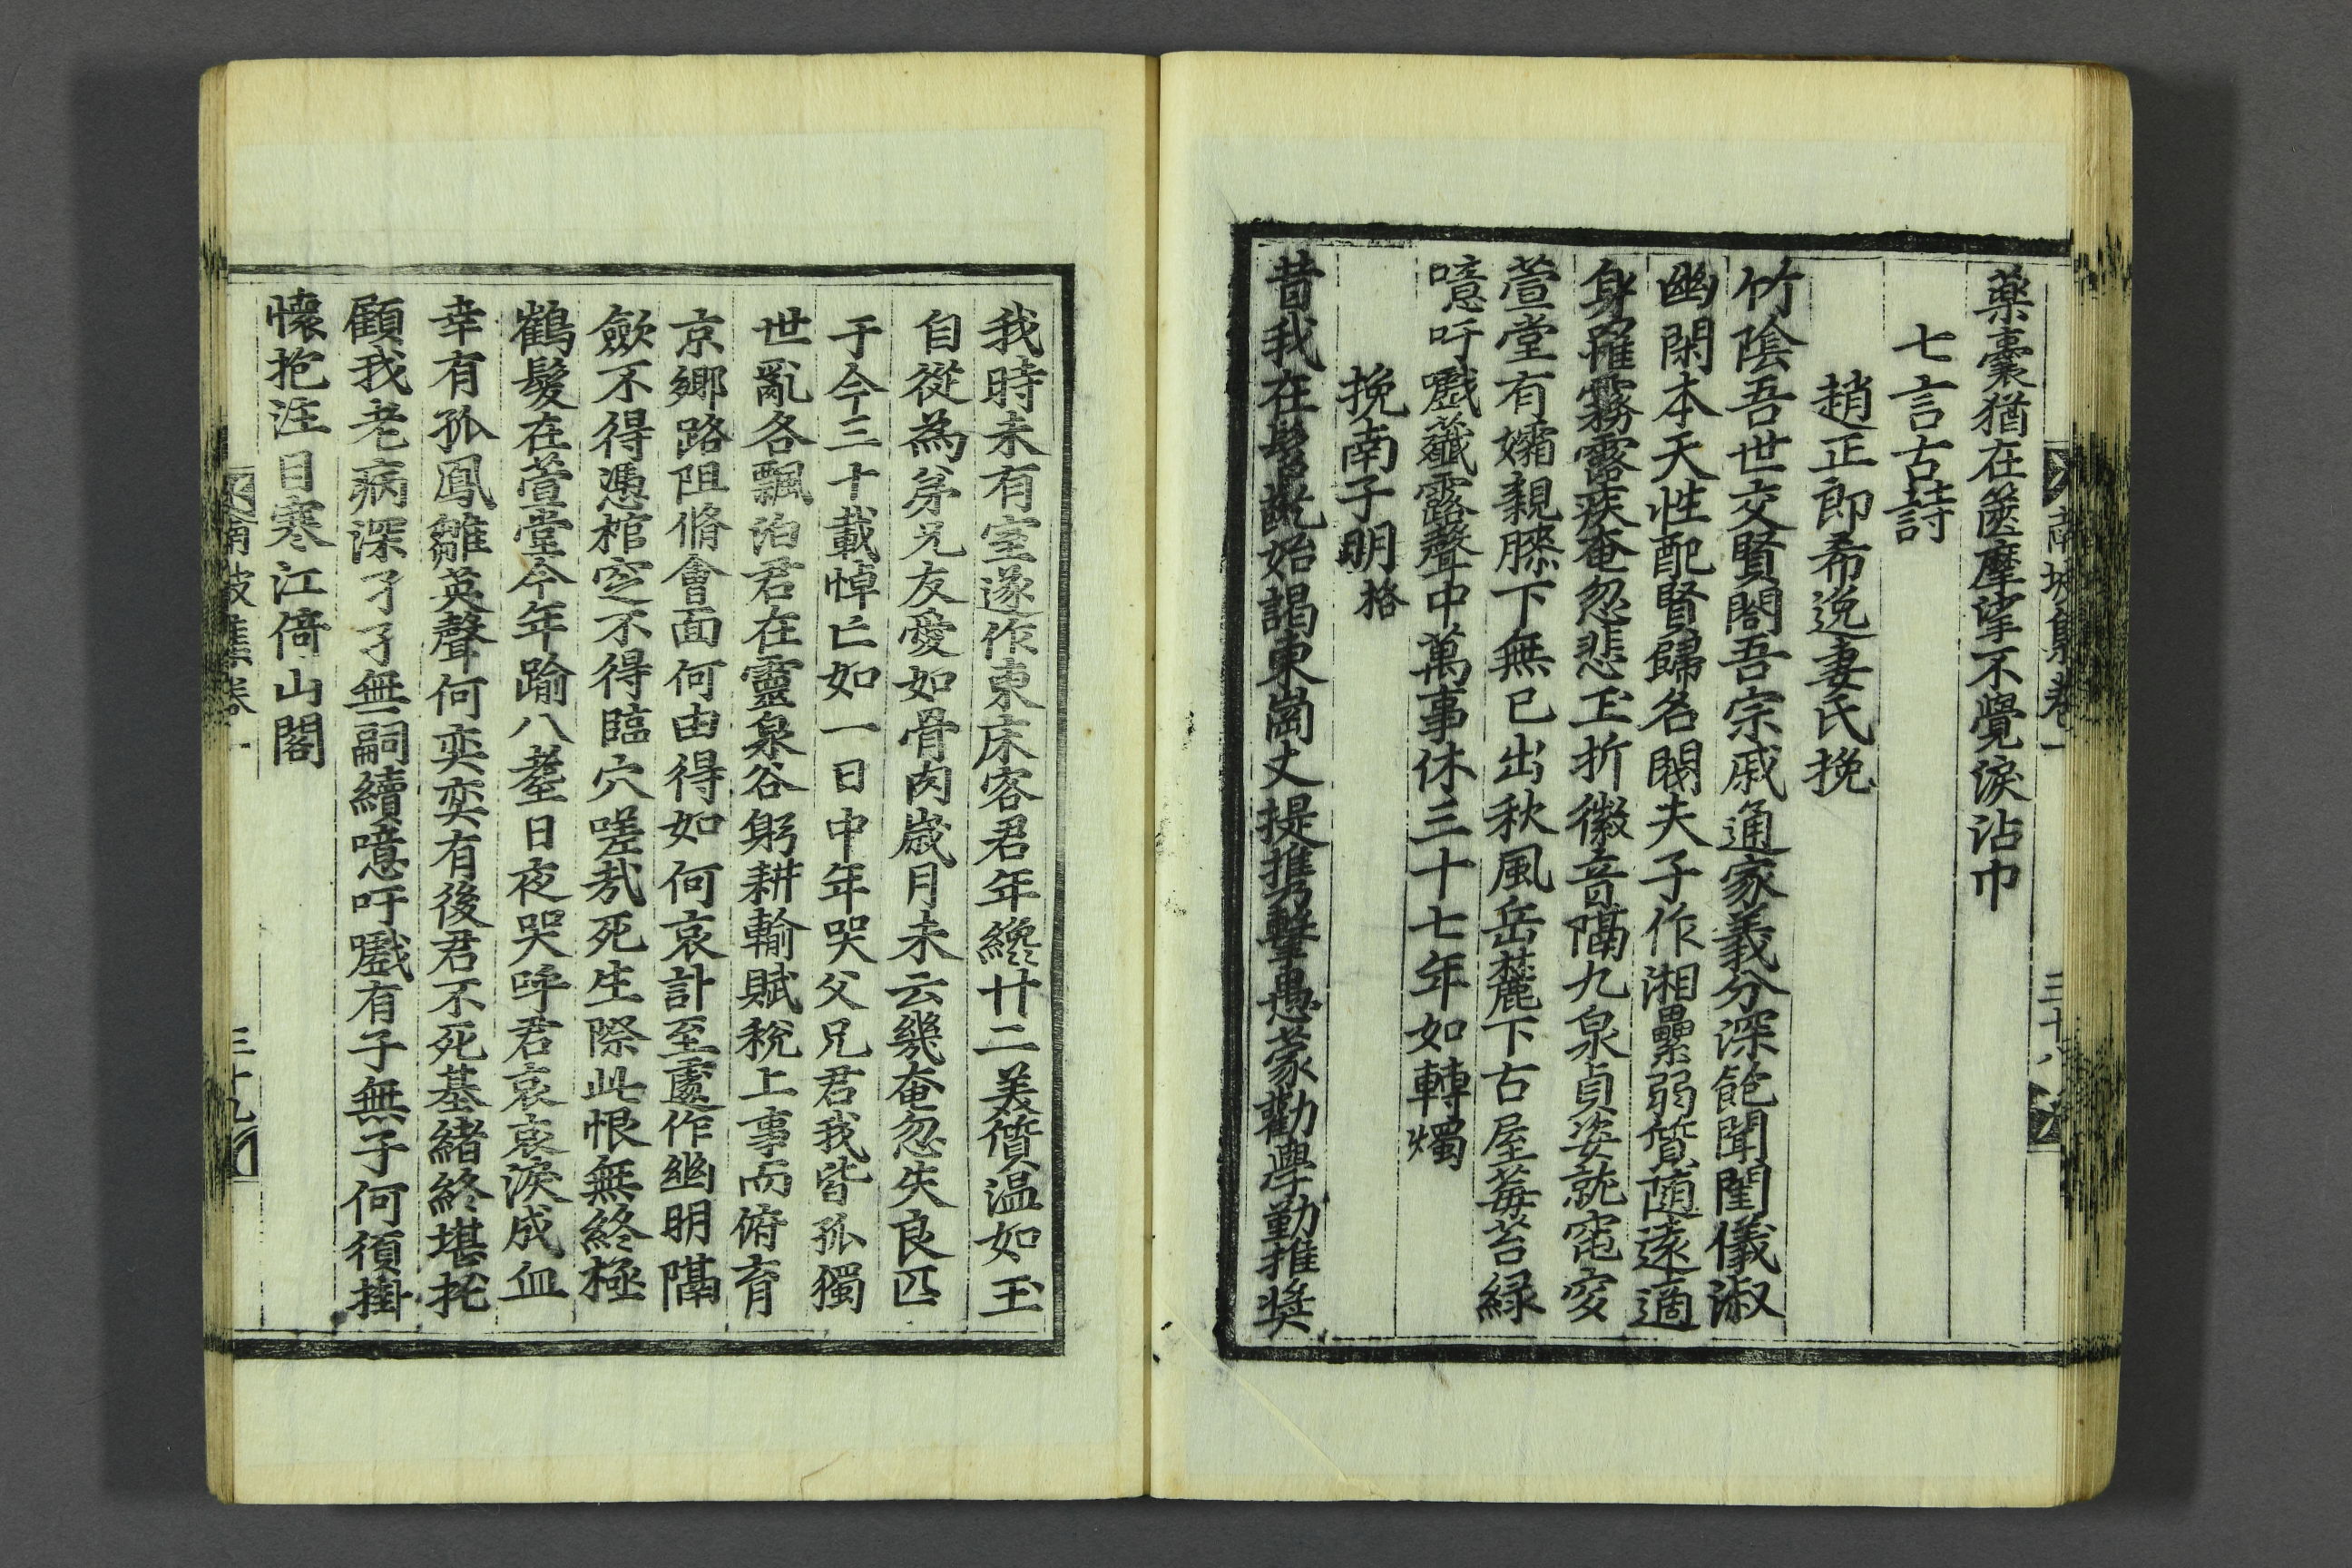 南坡集卷一
三十八
藥囊猶在篋摩挲不覺淚沾巾
七言古詩
趙正郎希逸妻氏挽
竹陰吾世交賢閤吾宗戚通家義分深飽聞閨儀淑
幽閑本天性配賢歸名閥夫子作湘纍弱質隨遠適
身罹霧露疾奄忽悲玉折徽音隔九泉貞姿就窀穸
萱堂有孀親膝下無已出秋風岳麓下古屋莓苔綠
噫吁嚱薤露聲中萬事休三十七年如轉燭
挽南子明格
昔我在髫齔始謁東崗丈提携擊愚蒙勸學勤推奬
我時未有室遂作東床客君年纔廿二美質温如玉
自從為弟兄友愛如骨肉歲月未云幾奄忽失良匹
于今三十載悼亡如一日中年哭父兄君我皆孤獨
世亂各飄泊君在靈泉谷躬耕輸賦稅上事而俯育
京鄉路阻脩會面何由得如何哀訃至處作幽明隔
歛不得憑棺窆不得臨穴嗟㢤死生際此恨無終極
鶴髮在萱堂今年踰八耋日夜哭呼君哀哀淚成血
幸有孤鳳雛英聲何奕奕有後君不死基緖終堪托
顧我老病深孑孑無嗣續噫吁嚱有子無子何須掛
懷抱注目寒江倚山閣
南坡集卷一
三十九